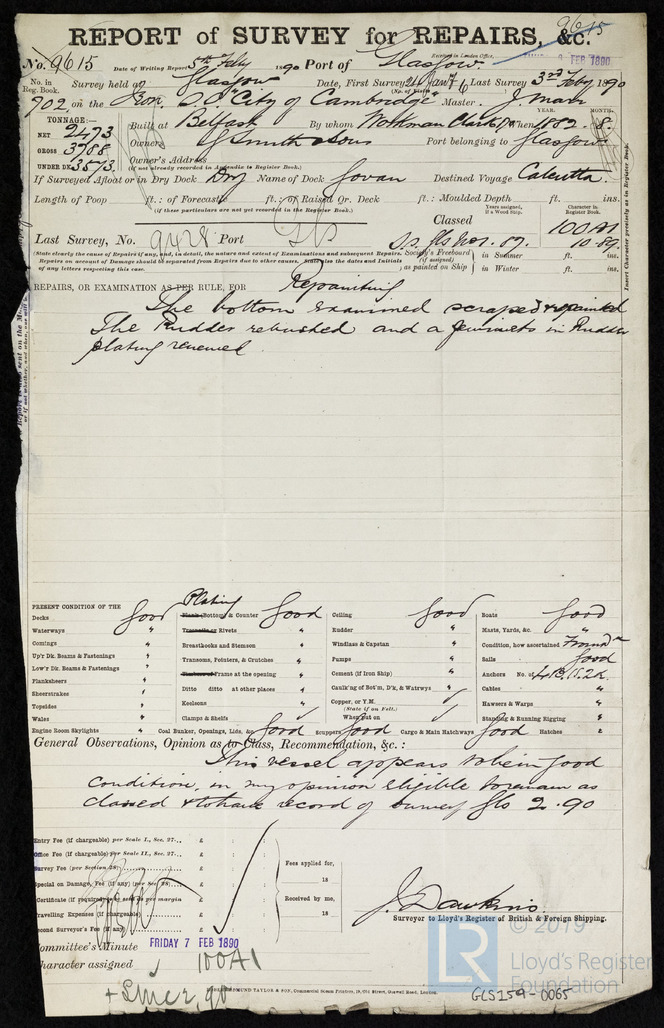 9615
REPORT of SURVEY for REPAIRS, &c.
Received in London Office, FEB 1890
No. 9615 Date of Writing Report 5th Feby 1890 Port of Glasgow.
No. in Reg. Book. Survey held at Glasgow Date, First Survey 24 Jany Last Survey 3rd Feby 1890
(No. of Visits 6)
702 on the S.S. "City of Cambridge" Master J. Marr
TONNAGE:—
NET 2473
GROSS 3788
UNDER DK 3573
Built at Belfast By whom Workman Clark & Co When 1882. 8.
YEAR. MONTH.
Owners G Smith & Sons Port belonging to Glasgow
Owner's Address
(if not already recorded in Appendix to Register Book.)
If Surveyed Afloat or in Dry Dock Dry Name of Dock Govan Destined Voyage Calcutta.
Length of Poop ft.: of Forecastle ft.: of Raised Qr. Deck ft.: Moulded Depth ft. ins.
(if these particulars are not yet recorded in the Register Book.)
Years assigned, if a Wood Ship. Character in Register Book.
Classed 100A1
10.89
Last Survey, No. 9428 Port Gls
Society's Freeboard (if assigned) as painted on Ship in Summer ft. ins.
in Winter ft. ins.
(State clearly the cause of Repairs if any, and, in detail, the nature and extent of Examinations and subsequent Repairs.
Repairs on account of Damage should be separated from Repairs due to other causes. State also the dates and initials
of any letters respecting this case.
Insert Character precisely as in Register Book.
REPAIRS, OR EXAMINATION AS PER RULE, FOR Repainting
The bottom examined scraped & repainted
The Rudder rebushed and a few rivets in Rudder
plating renewed
PRESENT CONDITION OF THE
Decks Good
Waterways "
Comings "
Up'r Dk. Beams & Fastenings "
Low'r Dk. Beams & Fastenings "
Planksheers "
Sheerstrakes "
Topsides "
Wales "
Engine Room Skylights "
Plating
Plank (Bottom) & Counter Good
Treenails or Rivets "
Breasthooks and Stemson "
Transoms, Pointers, & Crutches "
Timbers or Frames at the opening "
Ditto ditto at other places "
Keelsons "
Clamps & Shelfs
Coal Bunker, Openings, Lids, &c. Good
Ceiling Good
Rudder "
Windlass & Capstan "
Pumps "
Cement (if Iron Ship) "
Caulk'ng of Bot'm, D'k, & Watrwys "
Copper, or Y.M.
(State if on Felt.)
When put on
Scuppers Good Cargo & Main Hatchways Good
Boats Good
Masts, Yards, &c. "
Condition, how ascertained From Dk
Sails Good
Anchors No. of 4B. 1S. 2K.
Cables "
Hawsers & Warps "
Standing & Running Rigging "
Hatches
General Observations, Opinion as to Class, Recommendation, &c.:
This vessel appears to be in good
condition, in my opinion eligible to remain as
classed & to have record of survey Gls 2.90
Entry Fee (if chargeable) per Scale I., Sec. 27.. £ : :
Office Fee (if chargeable) per Scale II., Sec. 27... £ : :
Survey Fee (per Section 28) £ : :
Special on Damage, Fee (if any) (per Sec. 28) £ : :
Certificate (if required) to be sent as per margin
Travelling Expenses (if chargeable) £ : :
Second Surveyor's Fee (if any) £ : :
Fees applied for,
18
Received by me,
18
J. Dawkins.
Surveyor to Lloyd's Register of British & Foreign Shipping.
Committee's Minute FRIDAY 7 FEB 1890
Character assigned 100A1
+ Since, 90
© 2019
LR
Lloyd's Register
Foundation
GLS159-0065